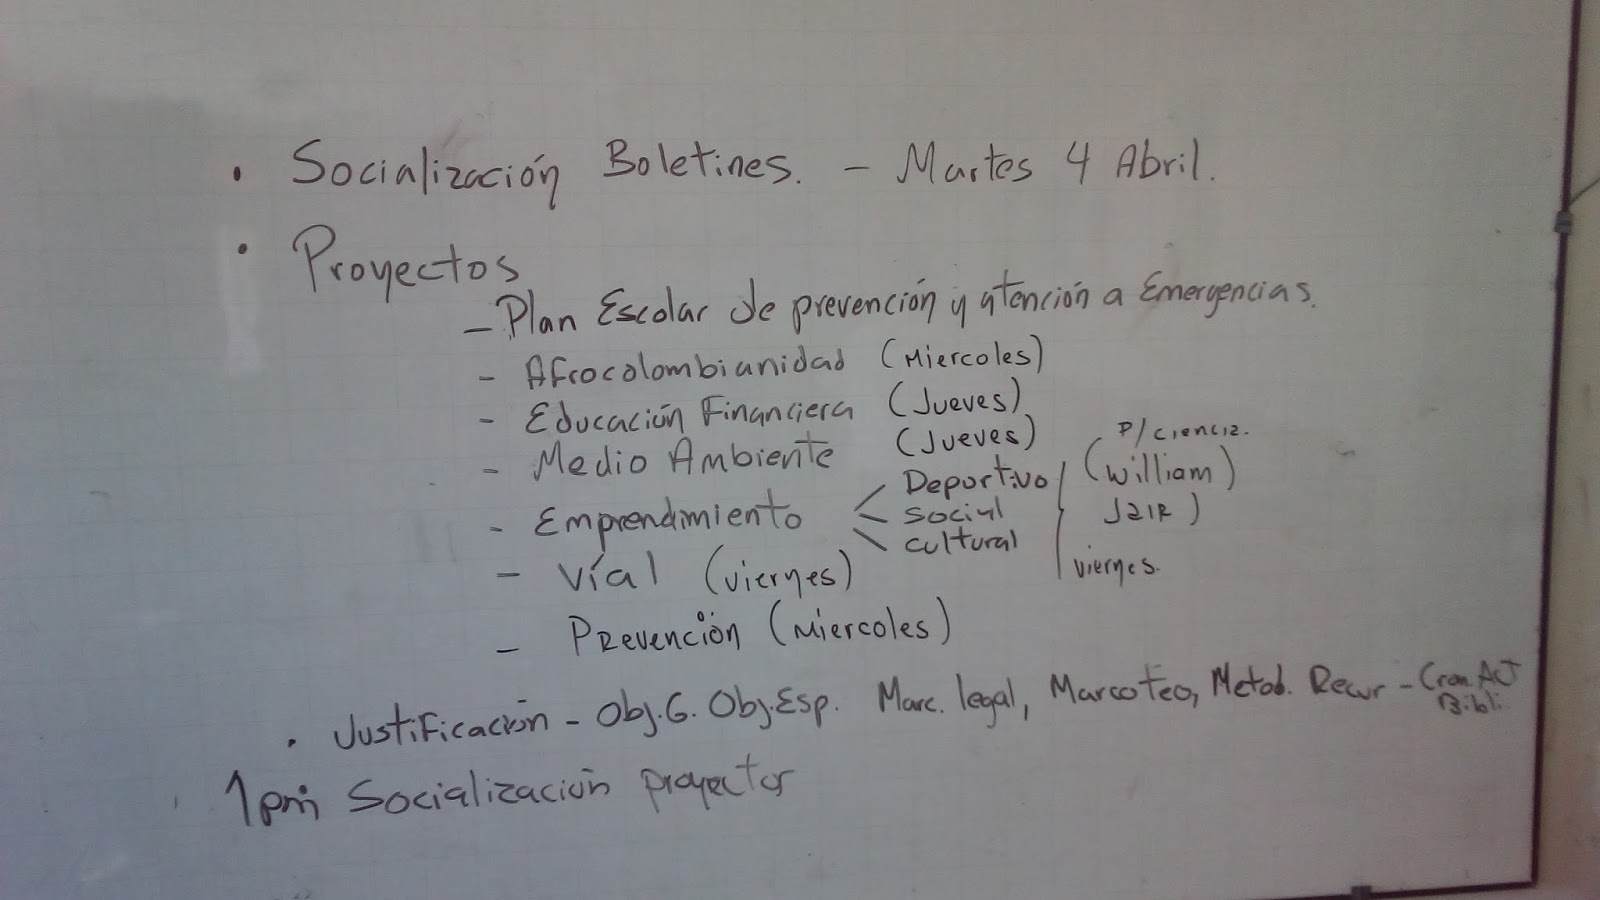 • Socialización Boletines. - Martes 4 Abril.
• Proyectos
- Plan Escolar de prevención y atención a Emergencias.
- Afrocolombianidad (Miercoles)
- Educación Financiera (Jueves)
- Medio Ambiente (Jueves)
- Emprendimiento
Deportivo
social
cultural
P/cienciz.
(William)
Jair)
viernes.
- Víal (viernes)
- Prevención (Miercoles)
• Justificación - Obj.G. Obj.Esp. Marc. legal, Marcoteo, Metod. Recur - Cron. Act
Bibli
1pm Socialización proyectos